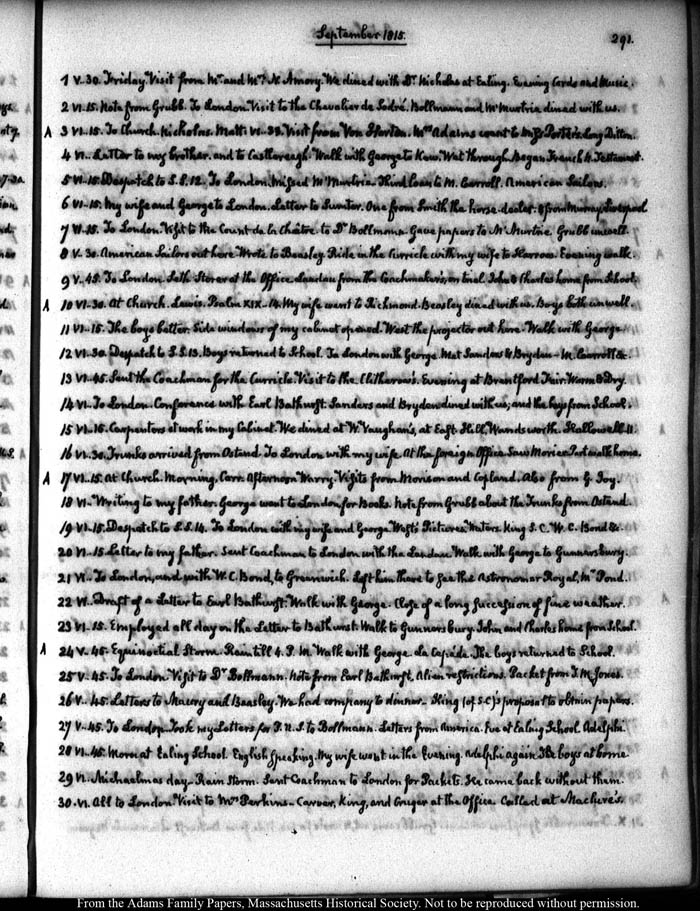 September 1815.
291.
1 V.30. Friday. Visit from Mr. and Mrs. N. Amory. We dined with Dr. Nicholas at Ealing. Evening Cards and Music.
2 VI.15. Note from Grubb. To London. Visit to the Chevalier de Sodré. Bollmann and Mr Murtrie dined with us.
A 3 VI.15. To Church. Nicholas. Matt: VI.33. Visit from Von Harten. Mrs Adams went to Long Ditton.
4 VI. Letter to my brother. and to Castlereagh. Walk with George to Kew. Wet through. Began French N. Testament.
5 VI.15. Despatch to S.S. 12. To London. missed Mr Murtrie. Third loan to M. Carroll. American Sailors.
6 VI.15. My wife and George to London. Letter to Sumter. One from Smith the horse-dealer. & from Murray, Liverpool
7 VI.15. To London. Visit to the Count de la Châtre. to Dr Bollmann. Gave papers to Mr Murtrie. Grubb unwell.
8 V.30. American Sailors out here. Wrote to Beasley. Ride in the Curricle with my wife to Harrow. Evening walk.
9 V.45. To London. Seth Storer at the Office. Landau from the Coachmaker's, on trial. John & Charles home from School.
A 10 VI.30. At Church. Lewis. Psalm XIX.14. My wife went to Richmond. Beasley dined with us. Boys both unwell.
11 VI.15. The boys better. Side windows of my cabinet opened. West the projector out here. Walk with George
12 VI.30. Despatch to S.S. 13. Boys returned to School. To London with George. Met Sanders & Bryden. M. Carroll &c
13 VI.45. Sent the Coachman for the Curricle. Visit to the Clitherow's. Evening at Brentford Fair. Warm & Dry.
14 VI. To London. Conference with Earl Bathurst. Sanders and Bryden dined with us; and the boys from School.
15 VI.16. Carpenters at work in my Cabinet. We dined at W. Vaughan's, at East Hill, Wandsworth. Hallowell 11.
16 VI.30. Trunks arrived from Ostend. To London with my wife. At the foreign Office. Saw Morier. Part walk home.
A 17 VI.15. At Church. Morning. Carr. Afternoon Warry. Visits from Morison and Copland. Also from G. Joy.
18 VI. Writing to my father. George went to London for Books. Note from Grubb about the Trunks from Ostend.
19 VI.15. Despatch to S.S. 14. To London with my wife and George. West's Pictures. Waters. King S.C. W.C. Bond &c.
20 VI.15. Letter to my father. Sent Coachman to London with the Landau. Walk with George to Gunnersbury.
21 VI. To London, and with W.C. Bond, to Greenwich. Left him there to see the Astronomer Royal, Mr Pond.
22 VI. Draft of a Letter to Earl Bathurst. Walk with George. Close of a long succession of fine weather.
23 VI.15. Employed all day on the Letter to Bathurst. Walk to Gunnersbury. John and Charles home from School.
A 24 V.45. Equinoctial Storm. Rain till 4. P.M. Walk with George. La Cepède. The boys returned to School.
25 V.45. To London. Visit to Dr Bollmann. Note from Earl Bathurst. Alien restrictions. Packet from T.M. Jones.
26 V.45. Letters to Maury and Beasley. We had company to dinner. King (of S.C.)'s proposal to obtain papers.
27 V.45. To London. Took my Letters for P.U.S. to Bollmann. Letters from America. Eve at Ealing School. Adelphi.
28 VI.45. Morn at Ealing School. English Speaking. My wife went in the Evening. Adelphi again. The boys at home
29 VI. Michaelmas day. Rain Storm. Sent Coachman to London for Packets. He came back without them.
30. VI. All to London. Visit to Mrs Perkins. Carver, King, and Cruger at the Office. Called at Machire's.
From the Adams Family Papers, Massachusetts Historical Society. Not to be reproduced without permission.